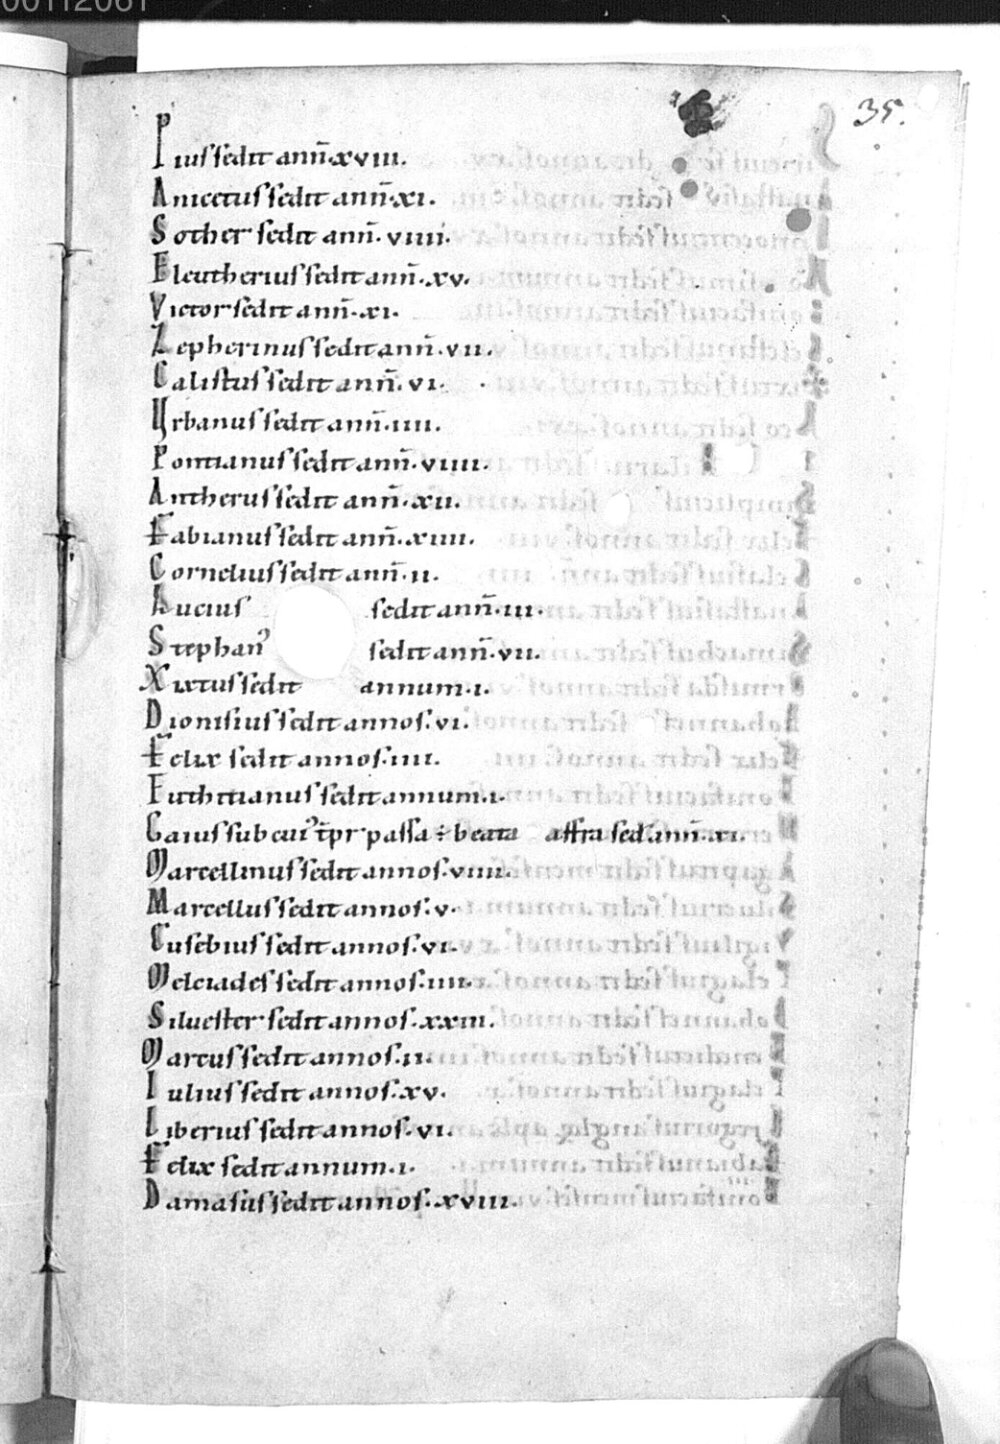 00112061
35.
Piuſ ſedit ann̄. xviii.
Anicetuſ ſedit ann̄. xi.
Sother ſedit ann̄. viiii.
Eleutheriuſ ſedit ann̄. xv.
Victor ſedit ann̄. xi.
Zepherinuſ ſedit ann̄. vii.
Caliſtuſ ſedit ann̄. vi.
Urbanuſ ſedit ann̄. iiii.
Pontianuſ ſedit ann̄. viiii.
Antheruſ ſedit ann̄. xii.
Fabianuſ ſedit ann̄. xiiii.
Corneliuſ ſedit ann̄. ii.
Luciuſ ſedit ann̄. iii.
Stephanꝰ ſedit ann̄. vii.
Xixtuſ ſedit annum. i.
Dioniſiuſ ſedit annoſ. vi.
Felix ſedit annoſ. iiii.
Euthitianuſ ſedit annum. i.
Gaiuſ ſub cuiꝰ t̄pr paſſa ÷ beata affra ſed. ann̄. xi.
Marcellinuſ ſedit annoſ. viiii.
Marcelluſ ſedit annoſ. v.
Euſebiuſ ſedit annoſ. vi.
Melciadeſ ſedit annoſ. iiii.
Silueſter ſedit annoſ. xxiii.
Marcuſ ſedit annoſ. ii.
Iuliuſ ſedit annoſ. xv.
Liberiuſ ſedit annoſ. vi.
Felix ſedit annum. i.
Damaſuſ ſedit annoſ. xviii.